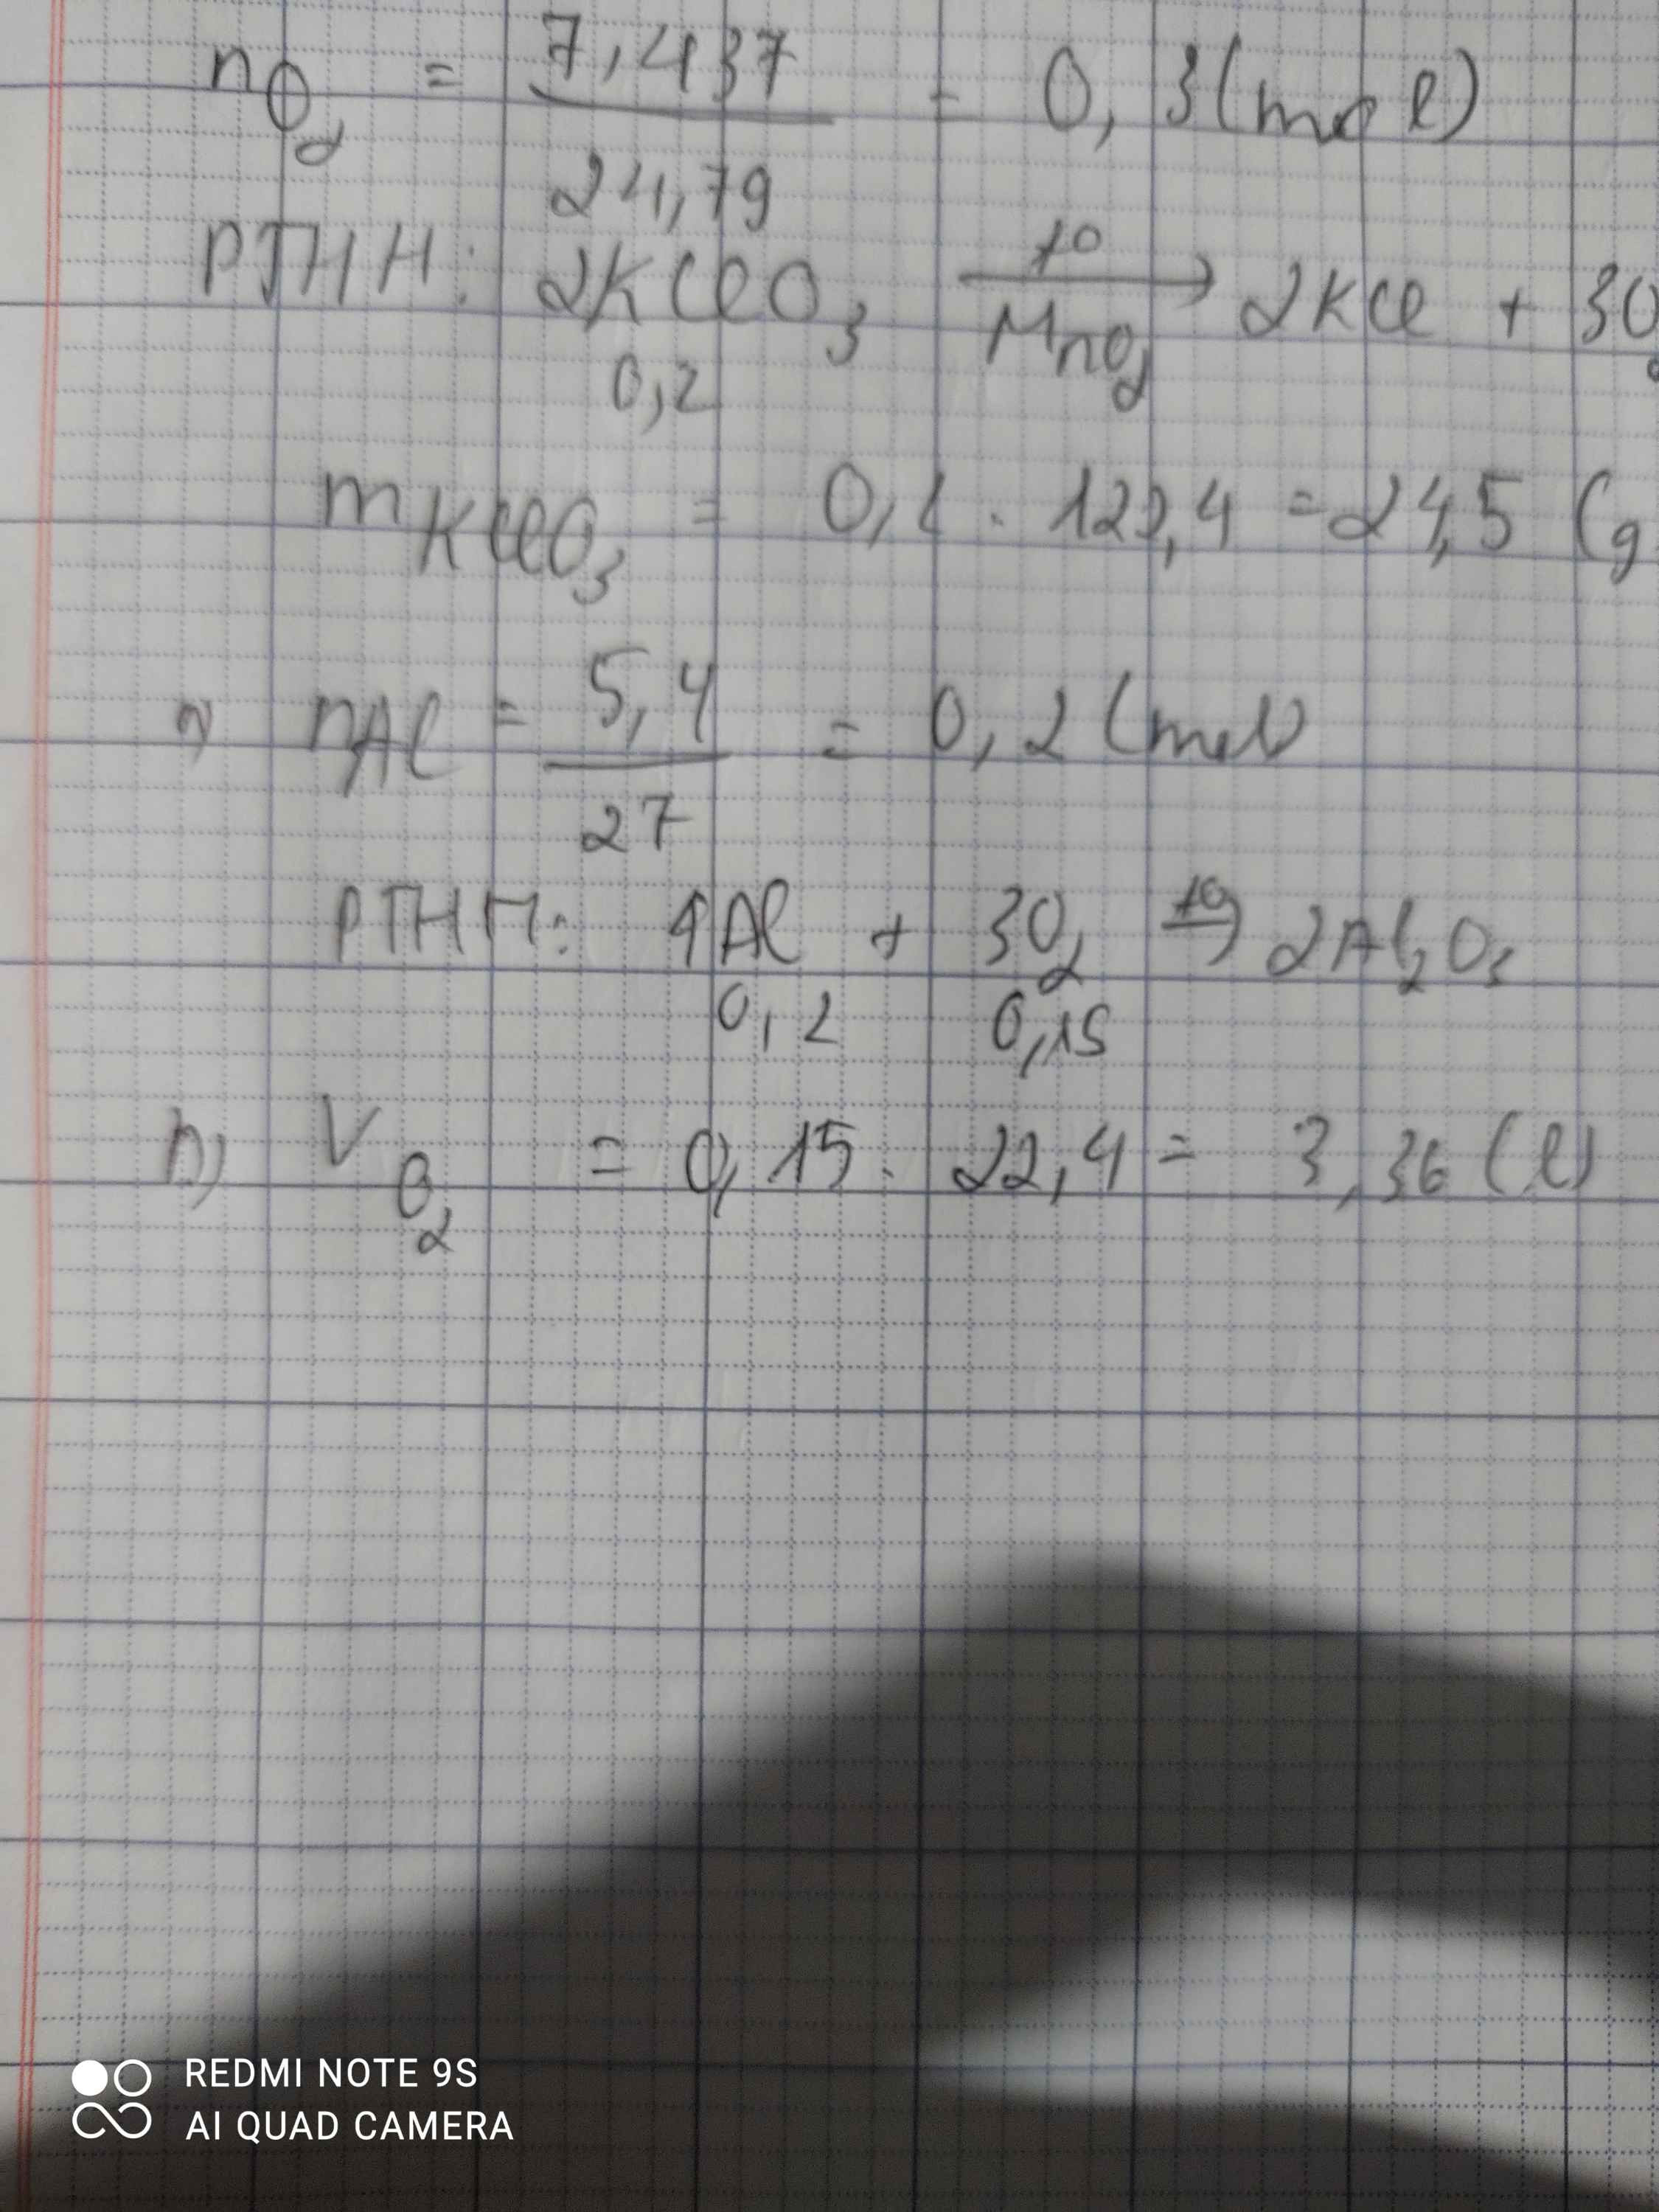 nO2 = 7,437 / 24,79 = 0,3 (mol)
PTHH: 2KClO3 →(t0, MnO2) 2KCl + 3O2
0,2
mKClO3 = 0,2 . 122,4 = 24,5 (g
nAl = 5,4 / 27 = 0,2 (mol)
PTHH: 4Al + 3O2 →(t0) 2Al2O3
0,2 0,15
b) VO2 = 0,15 . 22,4 = 3,36 (l)
REDMI NOTE 9S
AI QUAD CAMERA